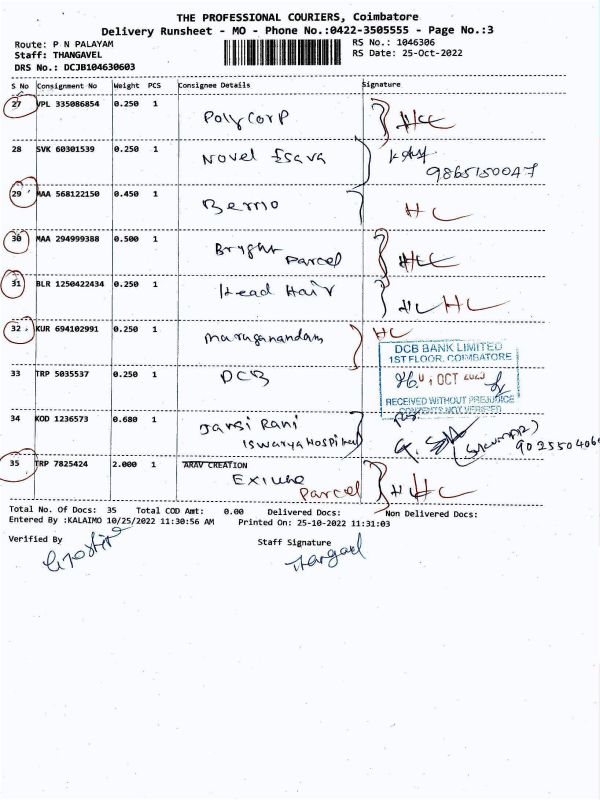 THE PROFESSIONAL COURIERS, Coimbatore
Delivery Runsheet - MO - Phone No.:0422-3505555 - Page No.:3
Route: P N PALAYAM
RS No.: 1046306
Staff: THANGAVEL
RS Date: 25-Oct-2022
DRS No.: DCJB104630603
S No Consignment No Weight PCS Consignee Details Signature
27 VPL 335086854 0.250 1
PolyCorP HCC
28 SVK 60301539 0.250 1
Novel Esava
9865150047
29 MAA 568122150 0.450 1
Berrio HC
30 MAA 294999388 0.500 1
Bryght Parcel
31 BLR 1250422434 0.250 1
Head Hair HC HC
32 KUR 694102991 0.250 1
Maruganandam HC
33 TRP 5035537 0.250 1
DCB
DCB BANK LIMITED
1ST FLOOR, COIMBATORE
OCT
RECEIVED WITHOUT PREJUDICE
CONTENTS NOT VERIFIED
34 KOD 1236573 0.680 1
Jansi Rani
Iswarya Hospital
9025504060
35 TRP 7825424 2.000 1 ARAV CREATION
Parcel HC
Total No. Of Docs: 35 Total COD Amt: 0.00 Delivered Docs: Non Delivered Docs:
Entered By :KALAIMO 10/25/2022 11:30:56 AM Printed On: 25-10-2022 11:31:03
Verified By Staff Signature